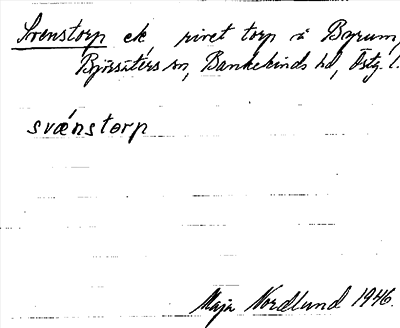 Svenstorp ek rivet torp å Byrum,
Björsäters sn, Bankekinds hd, Östg. l.
svǽnstorp
Maja Nordlund 1946.